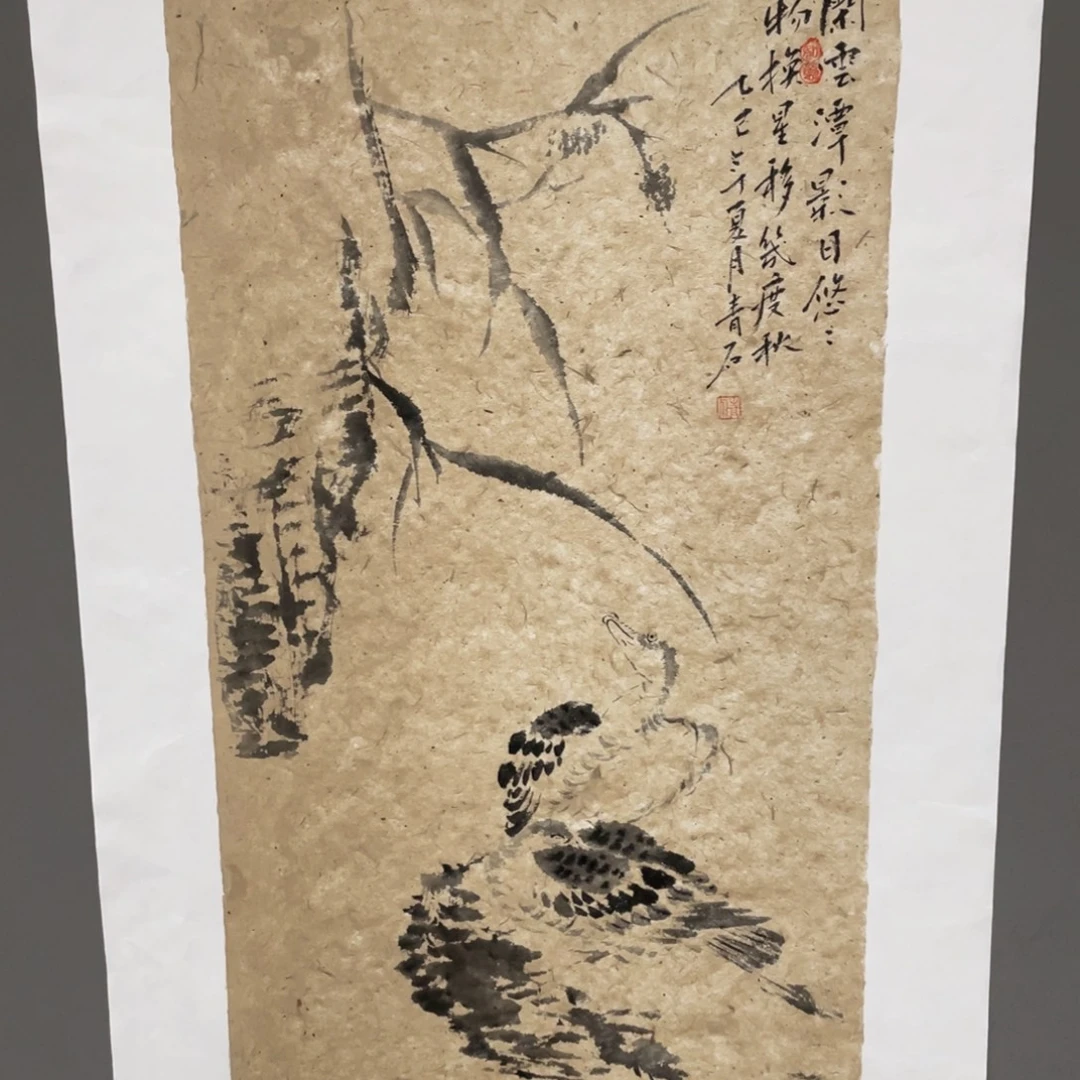 閑雲潭影日悠〻
物換星移幾度秋
乙巳年夏月青石